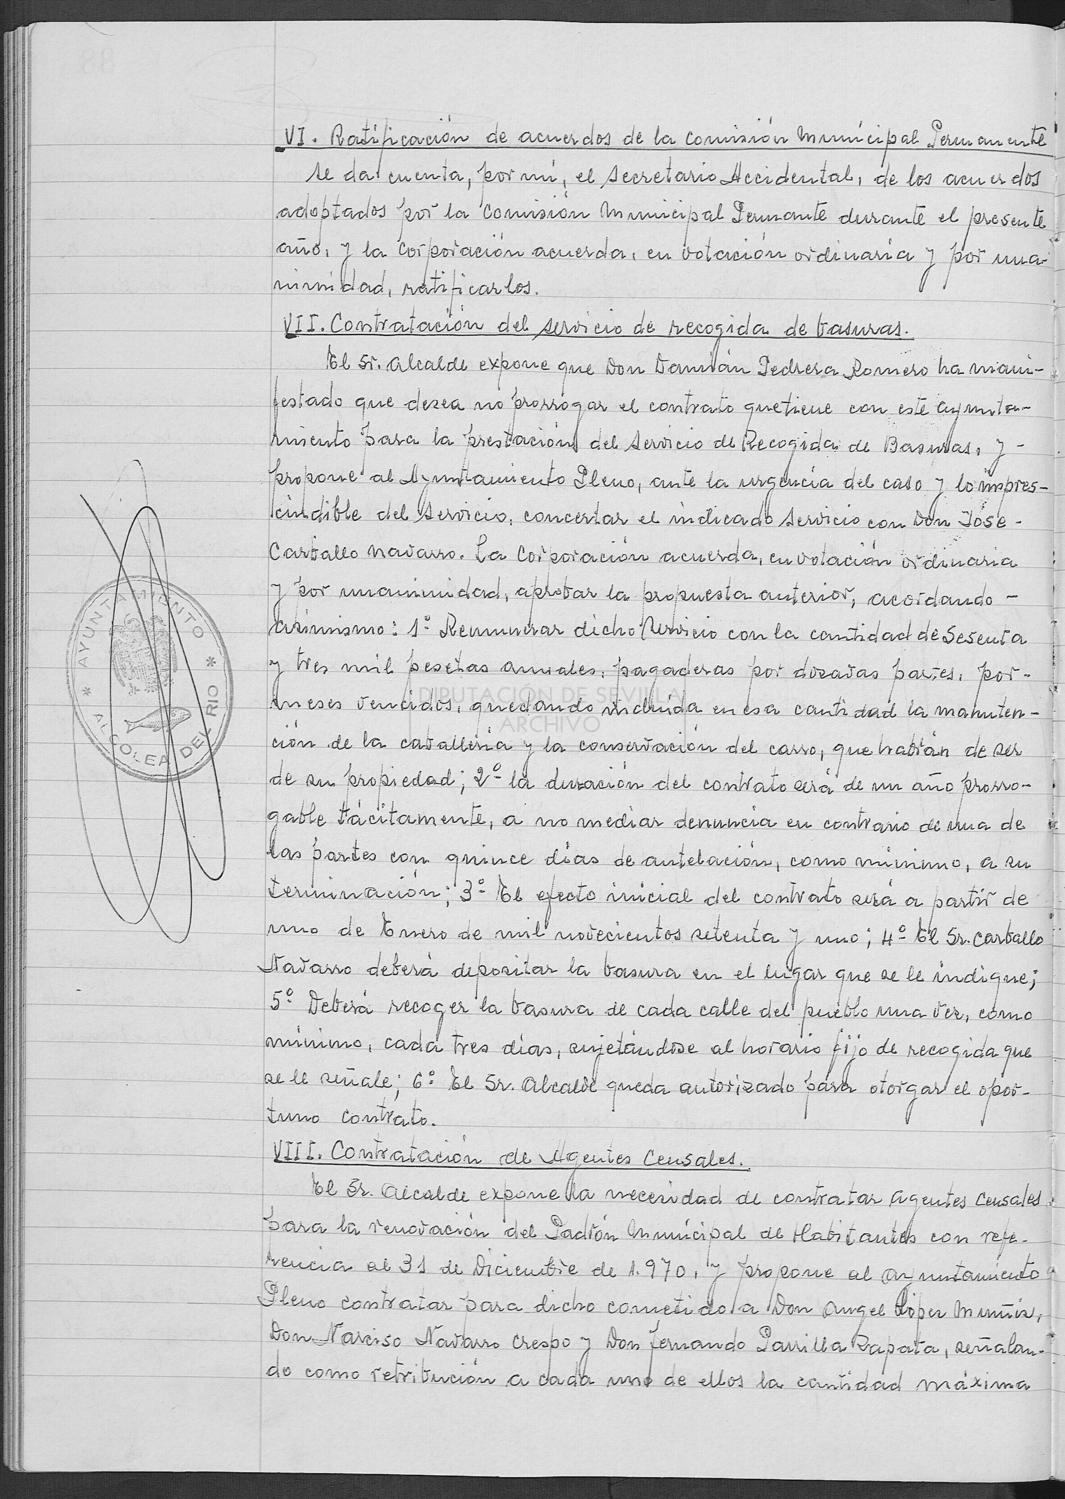 VI. Ratificación de acuerdos de la Comisión Municipal Permanente
Se da cuenta, por mí, el Secretario Accidental, de los acuerdos
adoptados por la Comisión Municipal Permante durante el presente
año, y la Corporación acuerda, en votación ordinaria y por una-
nimidad, ratificarlos.
VII. Contratación del servicio de recogida de basuras.
El Sr. Alcalde expone que Don Damián Pedrera Romero ha mani-
festado que desea no prorrogar el contrato que tiene con este Ayunta-
miento para la prestación del Servicio de Recogida de Basuras, y -
propone al Ayuntamiento Pleno, ante la urgencia del caso y lo impres-
cindible del servicio, concertar el indicado servicio con Don José -
Carballo Navarro. La Corporación acuerda, en votación ordinaria
y por unanimidad, aprobar la propuesta anterior, acordando -
asimismo: 1º Remunerar dicho Servicio con la cantidad de Sesenta
y tres mil pesetas anuales, pagaderas por dozavas partes, por -
meses vencidos, quedando incluida en esa cantidad la manuten-
ción de la caballería y la conservación del carro, que habrán de ser
de su propiedad; 2º la duración del contrato será de un año prorro-
gable tácitamente, a no mediar denuncia en contrario de una de
las partes con quince días de antelación, como mínimo, a su
terminación; 3º El efecto inicial del contrato será a partir de
uno de Enero de mil novecientos setenta y uno; 4º El Sr. Carballo
Navarro deberá depositar la basura en el lugar que se le indique;
5º Deberá recoger la basura de cada calle del pueblo una vez, como
mínimo, cada tres días, sujetándose al horario fijo de recogida que
se le señale; 6º El Sr. Alcalde queda autorizado para otorgar el opor-
tuno contrato.
VIII. Contratación de Agentes Censales.
El Sr. Alcalde expone la necesidad de contratar Agentes Censales
para la renovación del Padrón Municipal de Habitantes con refe-
rencia al 31 de Diciembre de 1.970, y propone al Ayuntamiento
Pleno contratar para dicho cometido a Don Angel López Muñiz,
Don Narciso Navarro Crespo y Don Fernando Parrilla Zapata, señalan-
do como retribución a cada uno de ellos la cantidad máxima
* AYUNTAMIENTO *
ALCOLEA DEL RIO
DIPUTACIÓN DE SEVILLA
ARCHIVO